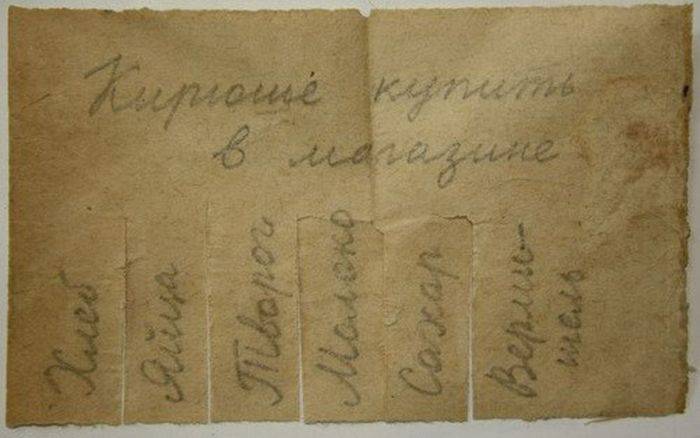 Кирюше купить
в магазине
Хлеб
Яйца
Творог
Молоко
Сахар
Верми-
шель